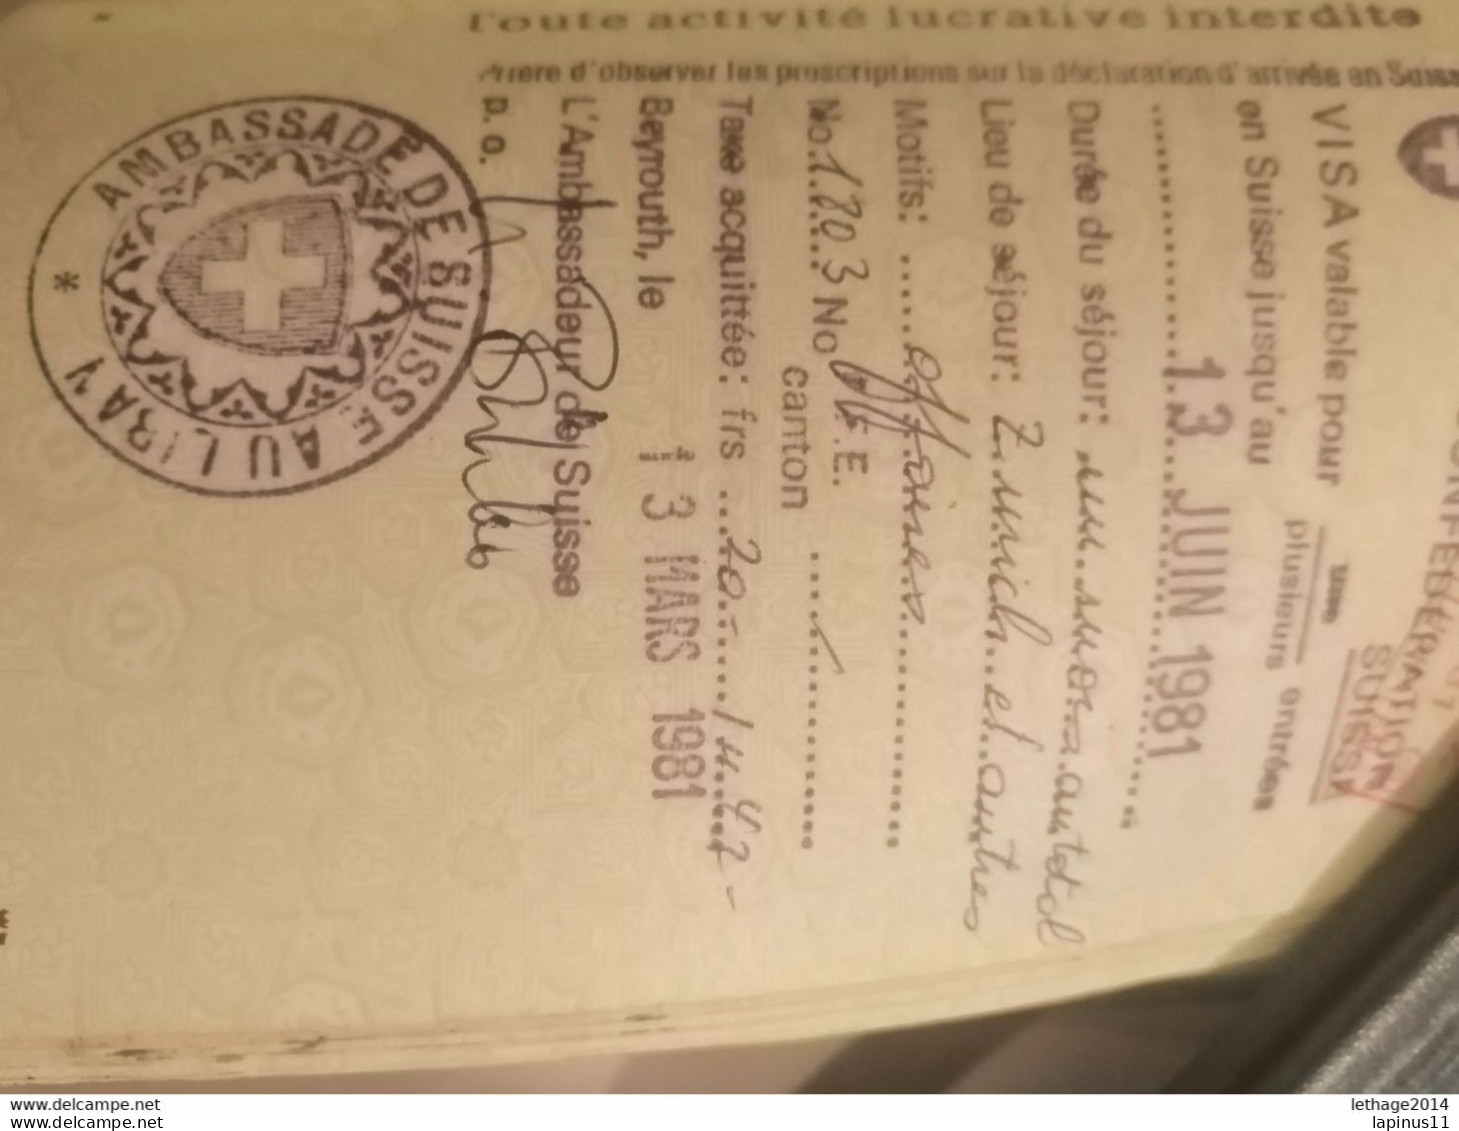 Toute activité lucrative interdite
Prière d'observer les prescriptions sur la déclaration d'arrivée en Suisse
CONFEDERATION
SUISSE
VISA valable pour une
plusieurs entrées
en Suisse jusqu'au
13 JUIN 1981
Durée du séjour: un mois au total
Lieu de séjour: Zurich et autres
Motifs: affaires
No. 1803 No P.E.
canton
Taxe acquittée: frs 20.-
Beyrouth, le 3 MARS 1981
L'Ambassadeur de Suisse
p. o.
AMBASSADE DE SUISSE AU LIBAN *
www.delcampe.net
www.delcampe.net
lethage2014
lapinus11